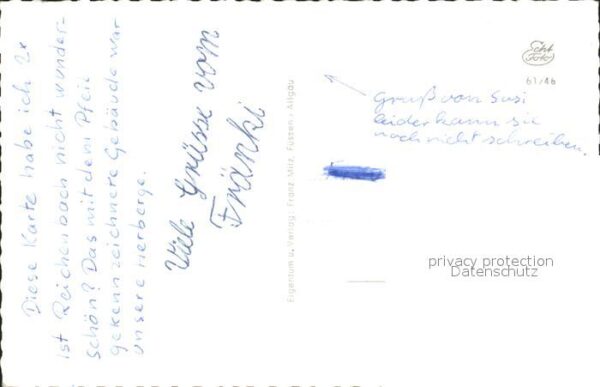 Diese Karte habe ich 2x
ist Reichenbach nicht wunder-
schön? Das mit dem Pfeil
gekennzeichnete Gebäude war
unsere Herberge.
Viele Grüsse vom
Fränki
Eigentum u. Verlag: Franz Milz, Füssen - Allgäu
Echt
Foto
61/46
Gruß von Susi
leider kann sie
noch nicht schreiben.
privacy protection
Datenschutz